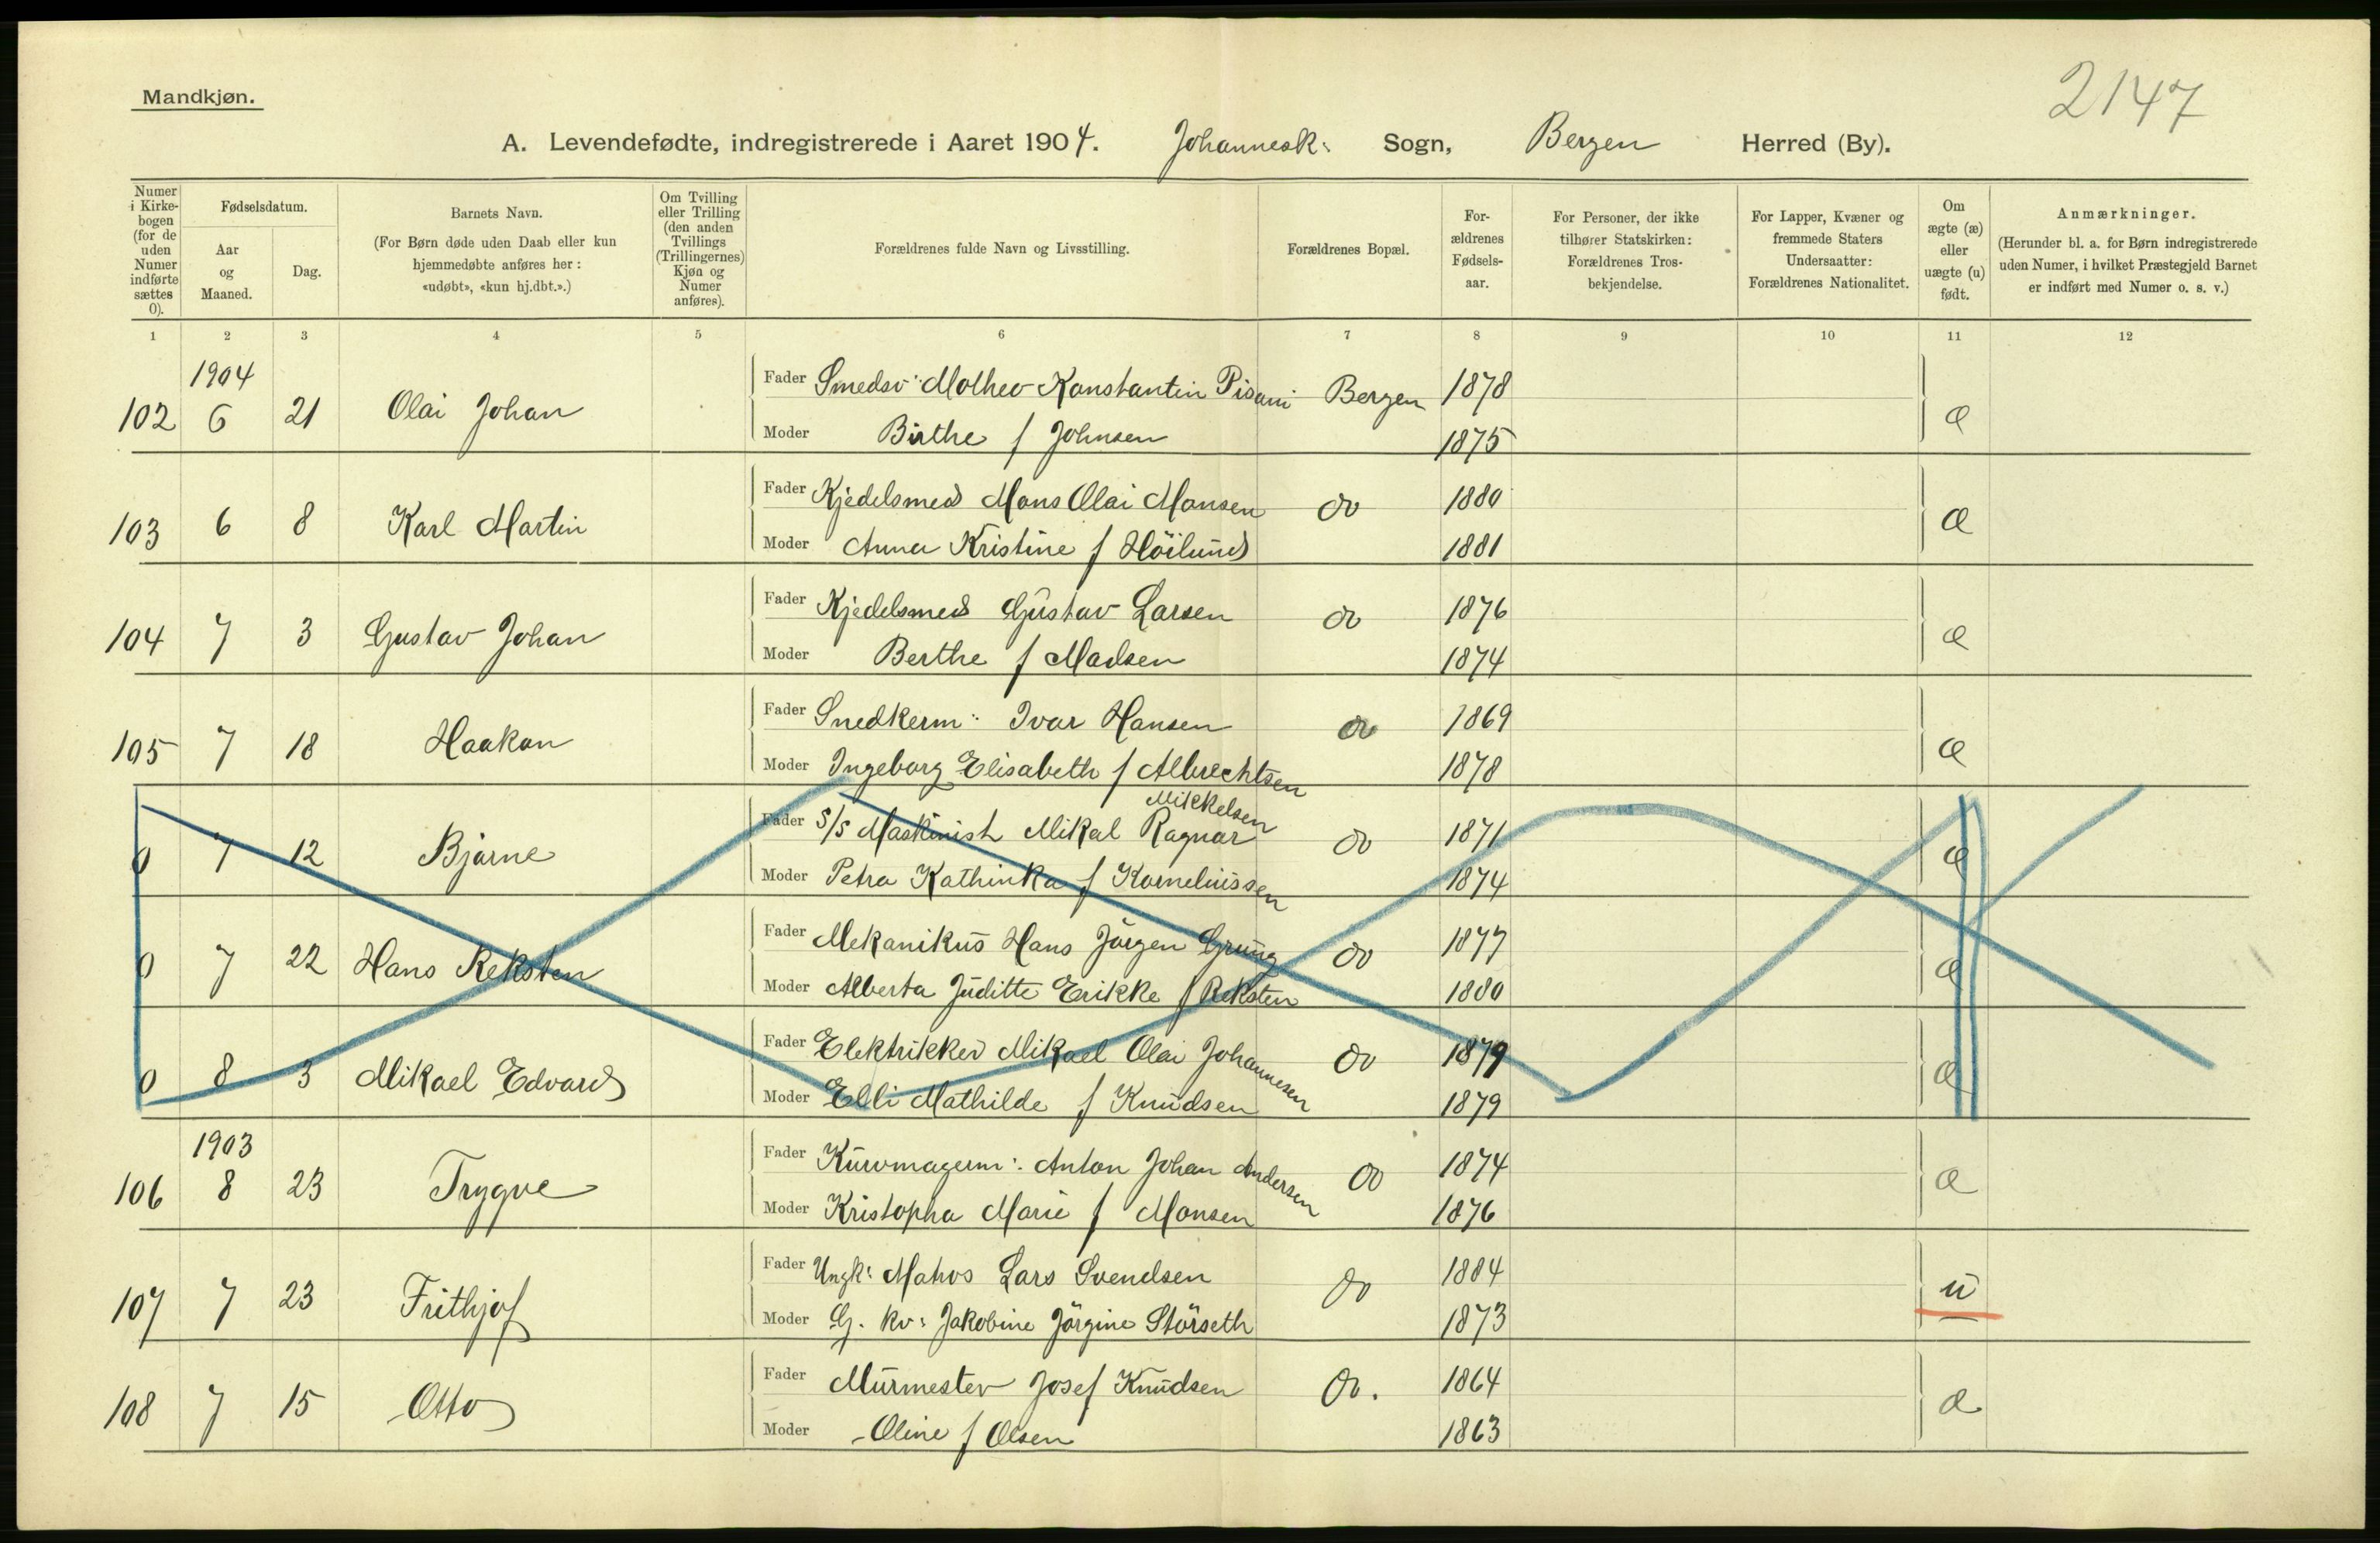 2147
Mandkjøn.
A. Levendefødte, indregistrerede i Aaret 1904. Johannesk: Sogn, Bergen Herred (By).
Numer i Kirkebogen (for de uden Numer indførte sættes 0).
Fødselsdatum.
Aar og Maaned.
Dag.
Barnets Navn.
(For Børn døde uden Daab eller kun hjemmedøbte anføres her: «udøbt», «kun hj.dbt.».)
Om Tvilling eller Trilling (den anden Tvillings (Trillingernes) Kjøn og Numer anføres).
Forældrenes fulde Navn og Livsstilling.
Forældrenes Bopæl.
Forældrenes Fødselsaar.
For Personer, der ikke tilhører Statskirken: Forældrenes Trosbekjendelse.
For Lapper, Kvæner og fremmede Staters Undersaatter: Forældrenes Nationalitet.
Om ægte (æ) eller uægte (u) født.
Anmærkninger.
(Herunder bl. a. for Børn indregistrerede uden Numer, i hvilket Præstegjeld Barnet er indført med Numer o. s. v.)
1 2 3 4 5 6 7 8 9 10 11 12
1904
102 6 21 Olai Johan Fader Smedsv: Matheo Konstantin Pisani Bergen 1878 æ
Moder Birthe f Johnsen 1875
103 6 8 Karl Martin Fader Kjedelsmed Mons Olai Monsen do 1880 æ
Moder Anna Kristine f Höilund 1881
104 7 3 Gustav Johan Fader Kjedelsmed Gustav Larsen do 1876 æ
Moder Berthe f Madsen 1874
105 7 18 Haakon Fader Snedkerm: Ivar Hansen do 1869 æ
Moder Ingeborg Elisabeth f Albrechtsen 1878
0 7 12 Bjarne Fader S/S Maskinist Mikal Ragnar Mikkelsen do 1871 æ
Moder Petra Kathinka f Korneliussen 1874
0 7 22 Hans Reksten Fader Mekanikus Hans Jörgen Grung do 1877 æ
Moder Alberta Juditte Erikke f Reksten 1880
0 8 3 Mikael Edvard Fader Elektriker Mikael Olai Johannesen do 1879 æ
Moder Elli Mathilde f Knudsen 1879
1903
106 8 23 Trygve Fader Kurvmagerm: Anton Johan Andersen do 1874 æ
Moder Kristopha Marie f Monsen 1876
107 7 23 Frithjof Fader Ungk: Matros Lars Svendsen do 1884 u
Moder G. kv: Jakobine Jörgine Störseth 1873
108 7 15 Otto Fader Murmester Josef Knudsen do. 1864 æ
Moder Oline f Olsen 1863